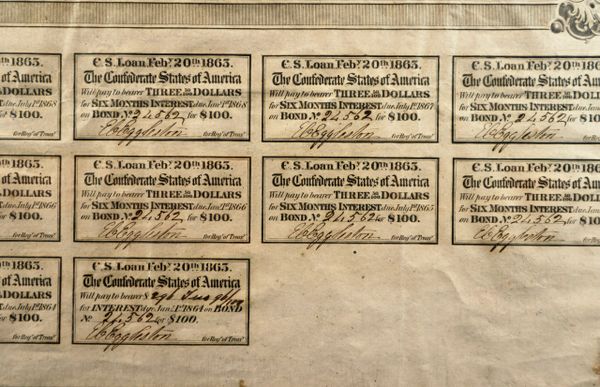 1863.
of America
DOLLARS
due July 1st 1868
for $100.
for Reg'r of Treas'y
C.S. Loan Feb'y 20th 1863.
The Confederate States of America
Will pay to bearer THREE DOLLARS
for SIX MONTHS INTEREST due Jan'y 1st 1868
on BOND No 24562 for $100.
E C Eggleston
for Reg'r of Treas'y
C.S. Loan Feb'y 20th 1863.
The Confederate States of America
Will pay to bearer THREE DOLLARS
for SIX MONTHS INTEREST due July 1st 1867
on BOND No 24562 for $100.
E C Eggleston
for Reg'r of Treas'y
C.S. Loan Feb'y 20th 1863.
The Confederate States of America
Will pay to bearer THREE DOLLARS
for SIX MONTHS INTEREST due Jan'y
on BOND No 24562 for $100.
E C Eggleston
for Reg'r of Treas'y
1863.
of America
DOLLARS
due July 1st 1866
for $100.
for Reg'r of Treas'y
C.S. Loan Feb'y 20th 1863.
The Confederate States of America
Will pay to bearer THREE DOLLARS
for SIX MONTHS INTEREST due Jan'y 1st 1866
on BOND No 24562 for $100.
E C Eggleston
for Reg'r of Treas'y
C.S. Loan Feb'y 20th 1863.
The Confederate States of America
Will pay to bearer THREE DOLLARS
for SIX MONTHS INTEREST due July 1st 1865
on BOND No 24562 for $100.
E C Eggleston
for Reg'r of Treas'y
C.S. Loan Feb'y 20th 1863.
The Confederate States of America
Will pay to bearer THREE DOLLARS
for SIX MONTHS INTEREST due Jan'y
on BOND No 24562 for $100.
E C Eggleston
for Reg'r of Treas'y
1863.
of America
DOLLARS
due July 1st 1864
for $100.
for Reg'r of Treas'y
C.S. Loan Feb'y 20th 1863.
The Confederate States of America
Will pay to bearer $
for INTEREST due Jan'y 1st 1864 on BOND
No 24562 for $100.
E C Eggleston
for Reg'r of Treas'y